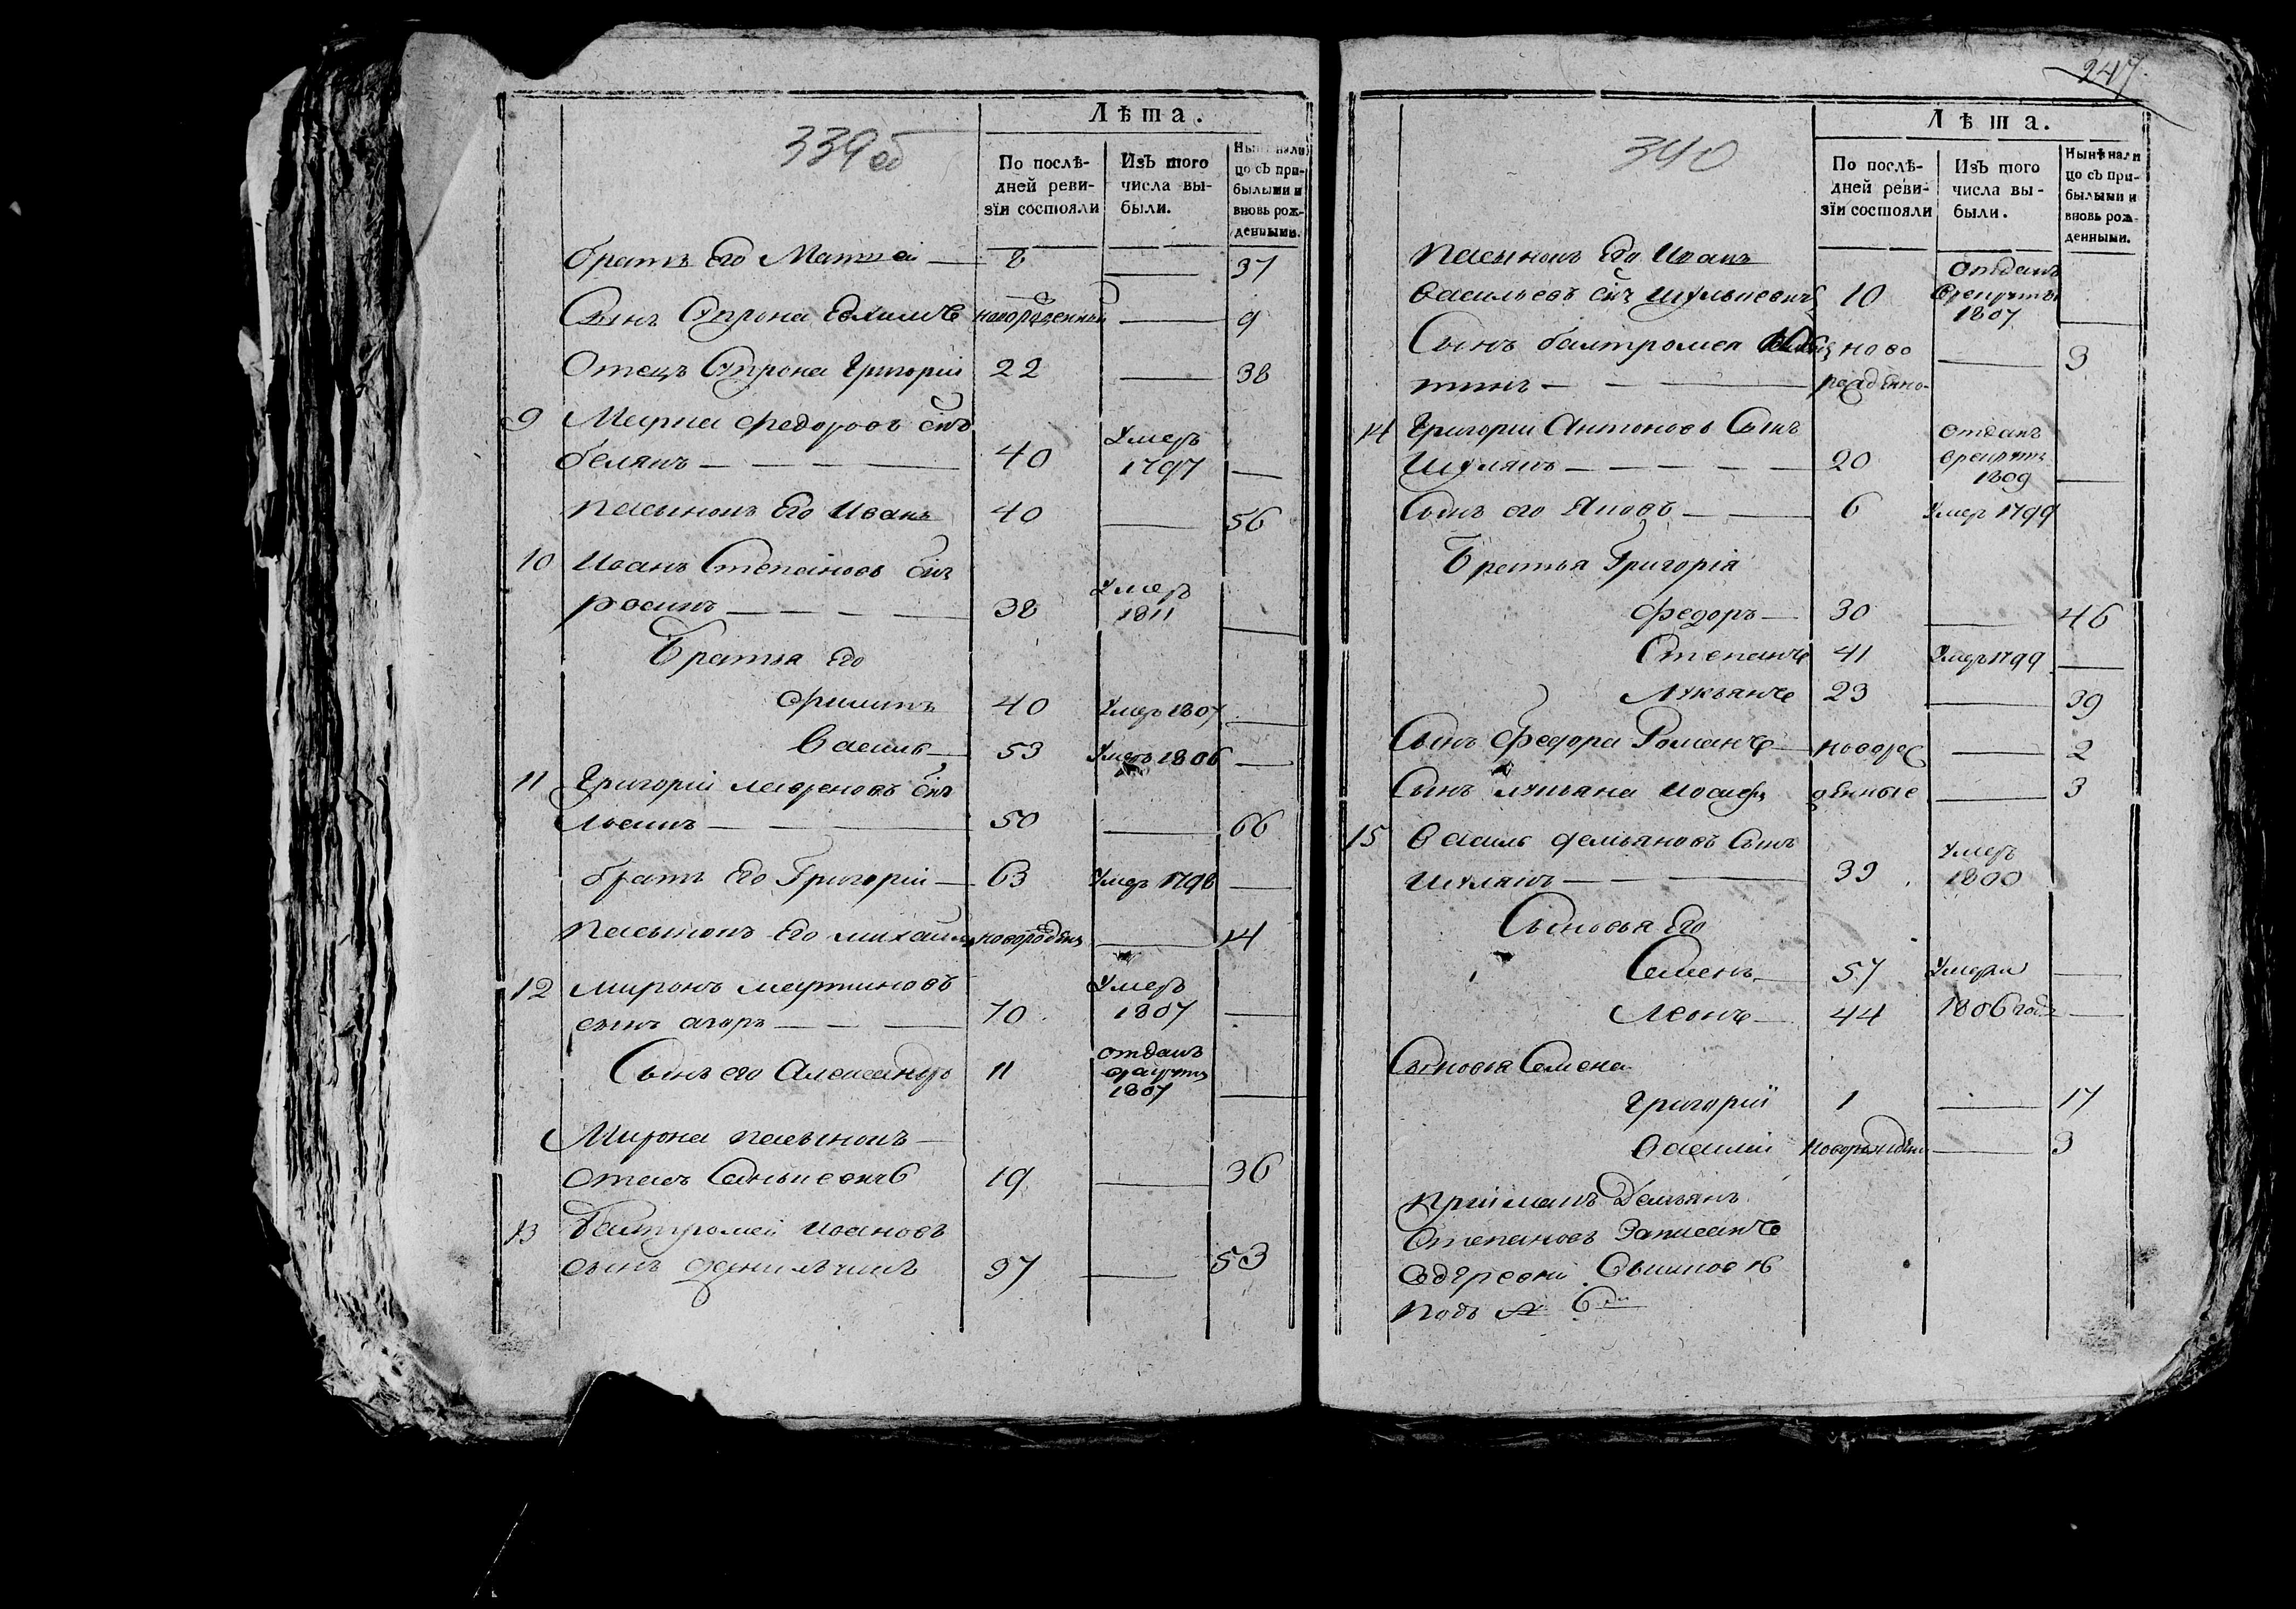 339об
Лѣта.
По послѣ-
дней реви-
зіи состояли
Изъ того
числа вы-
были.
Нынѣ нали
цо съ при-
былыми и
вновь рож-
денными.
братъ Его Матвей — 8 — 37
Сынъ Супрона новорожденный — 9
Отецъ Супрона Григорій 22 — 38
9 Марка Федоровъ снъ
белякъ — — — 40 Умеръ 1797 —
пасынокъ Его Иванъ 40 — 56
10 Иванъ Степановъ снъ
38 Умеръ 1811 —
Братья Его
Филипъ 40 Умеръ 1807 —
Василь — 53 Умеръ 1806 —
11 Григорій Лавреновъ снъ
— — 50 — 66
братъ Его Григорій — 63 Умеръ 1798 —
пасынокъ Его Михаила новорожден — 14
12 Миронъ Мартиновъ
сынъ — — 70 Умеръ 1807 —
Сынъ его Александръ 11 отданъ врекруты 1807 —
Мирона пасынокъ —
19 — 36
13 Балтромей Ивановъ
сынъ 37 — 53
247
340
Лѣта.
По послѣ-
дней реви-
зіи состояли
Изъ того
числа вы-
были.
Нынѣ нали
цо съ при-
былыми и
вновь рож-
денными.
пасынокъ Его Иванъ
Васильевъ снъ 10 отданъ врекруты 1807 —
Сынъ балтромея ново
— — рожденно — 3
14 Григорій Антоновъ Сынъ
Шулякъ — — — — 20 отданъ врекруты 1809 —
Сынъ его Яковъ — — 6 Умеръ 1799
Братья Григорія
Федоръ — 30 — 46
Степанъ 41 Умеръ 1799 —
Лукьянъ 23 — 39
Сынъ Федора Романъ — новорож — 2
Сынъ Лукьяна Иосифъ денные — 3
15 Василь Демьяновъ Сынъ
Шулякъ — — 39 Умеръ 1800
Сыновья Его
Семенъ — 57 Умерли —
Леонъ — 44 1806 года —
Сыновья Семена
Григорій 1 — 17
Василій новорожден — 3
Приймакъ Демьянъ
Степановъ Записанъ
вдеревни
подъ № 6м